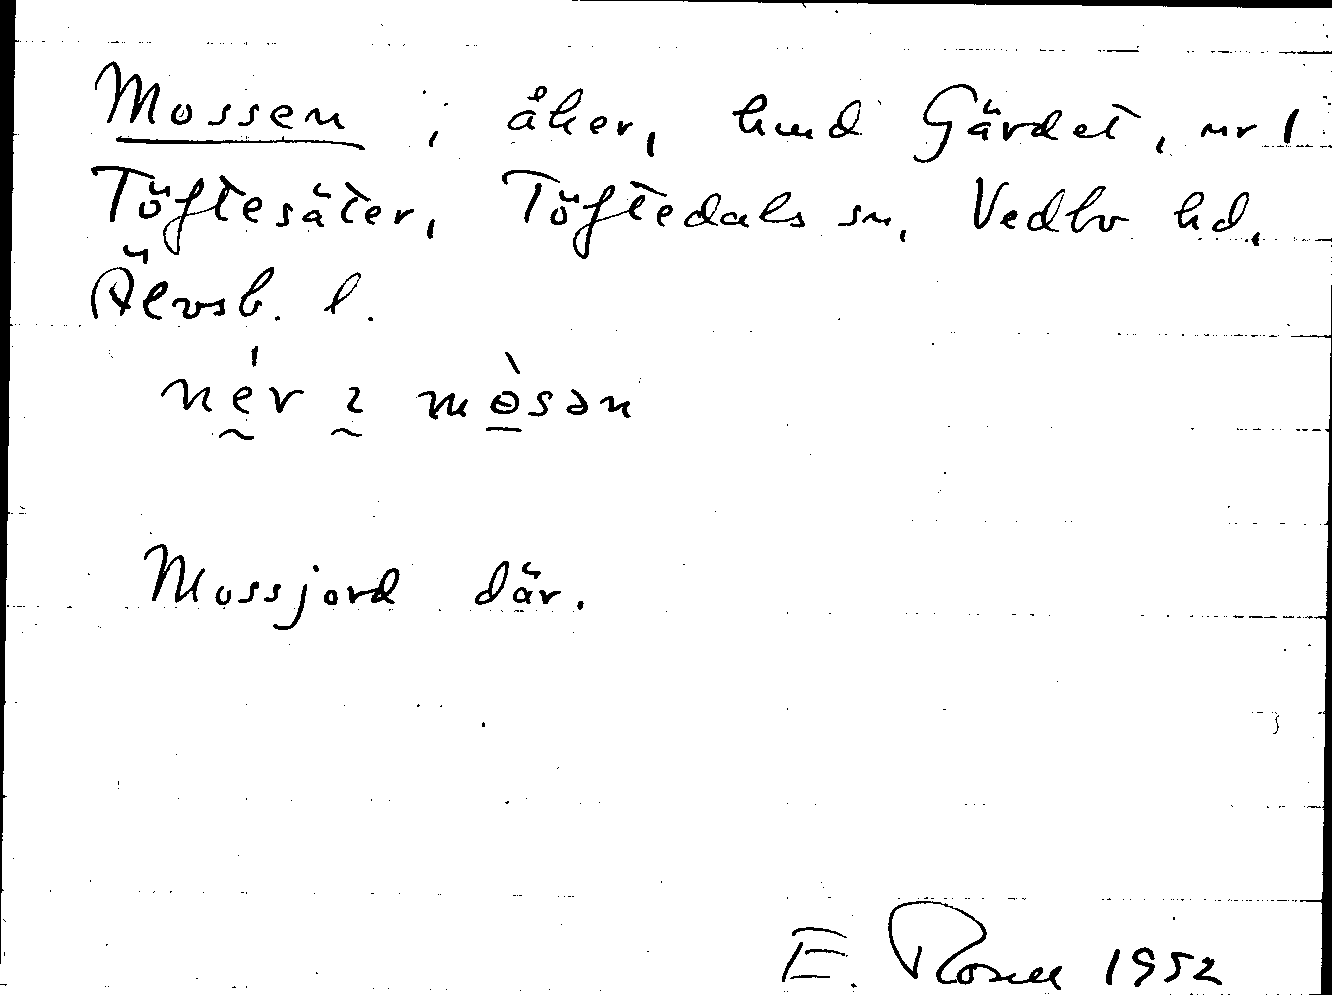 Mossen, åker, hmd Gärdet, nr 1
Töftesäter, Töftedals sn, Vedbo hd,
Älvsb. l.
név ɩ mɵ̀sən
Mossjord där.
E. Rosell 1952